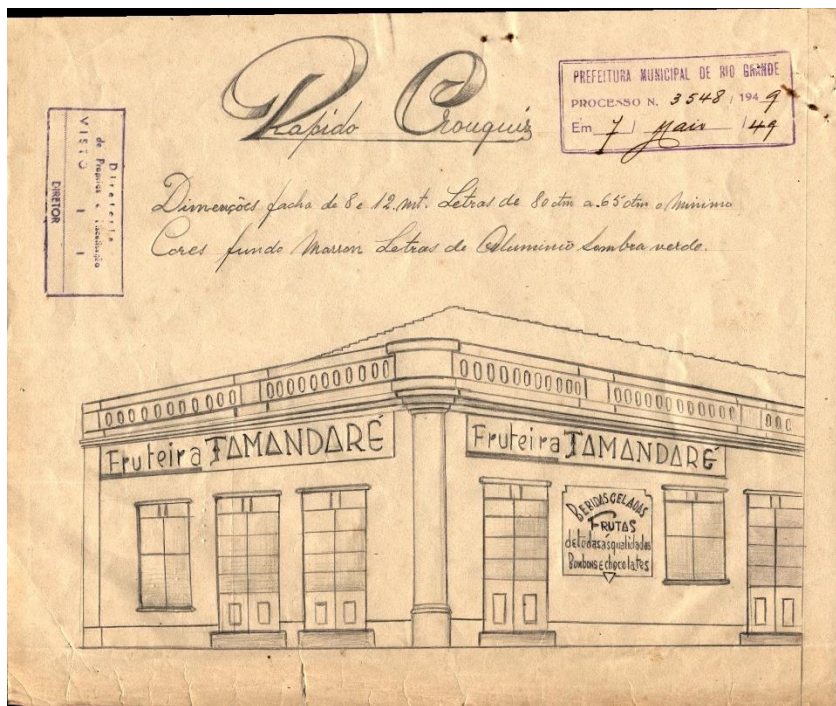 Rapido Crouquis
PREFEITURA MUNICIPAL DE RIO GRANDE
PROCESSO N. 3548 / 1949
Em 7 / Maio / 49
Diretoria
de Propios e Fiscalisação
VISTO I I
DIRETOR
Dimenções facha de 8 e 12. mt. Letras de 80 ctm a. 65 ctm o Minimo
Cores fundo Marron Letras de Aluminio Sombra verde.
Fruteira TAMANDARÉ
Fruteira TAMANDARÉ
BEBIDAS GELADAS
FRUTAS
de todas ás qualidades
Bombons e chocolates